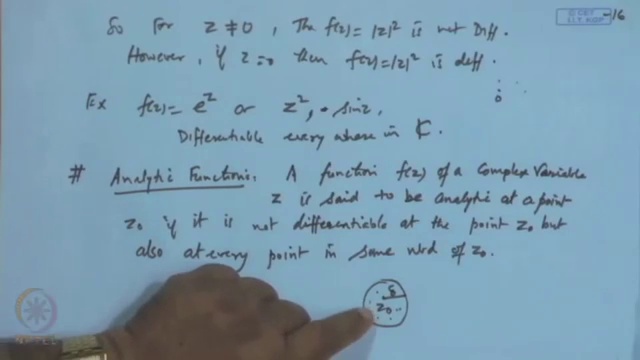 © CET
I.I.T. KGP
-16
So For z ≠ 0, The f(z) = |z|² is not Diff.
However, if z = 0 then f(z) = |z|² is diff.
0
Ex f(z) = e^z or z², sin z,
Differentiable every where in ₵.
# Analytic Function: A function f(z) of a Complex Variable
z is said to be analytic at a point
z₀ if it is not differentiable at the point z₀ but
also at every point in some nbd of z₀.
δ
z₀
NPTEL